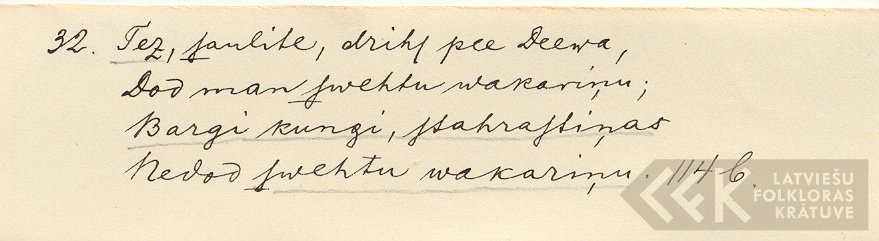 32. Tez, ſaulite, drihſ pee Deewa,
Dod man ſwehtu wakariņu;
Bargi kungi, ſtahraſtiņas
Nedod ſwehtu wakariņu. 114 C.
LATVIEŠU
FOLKLORAS
KRĀTUVE